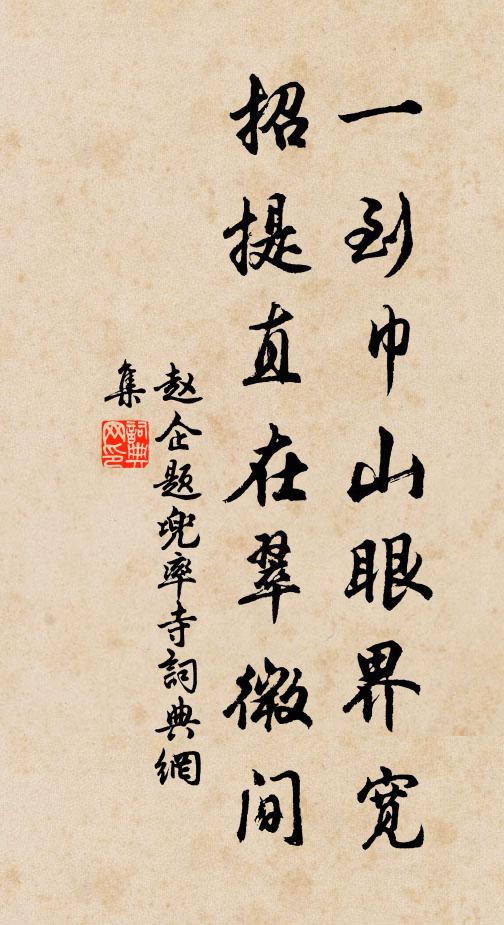 一到巾山眼界宽
招提直在翠微间
赵企题兜率寺詞典網
集
詞典网印